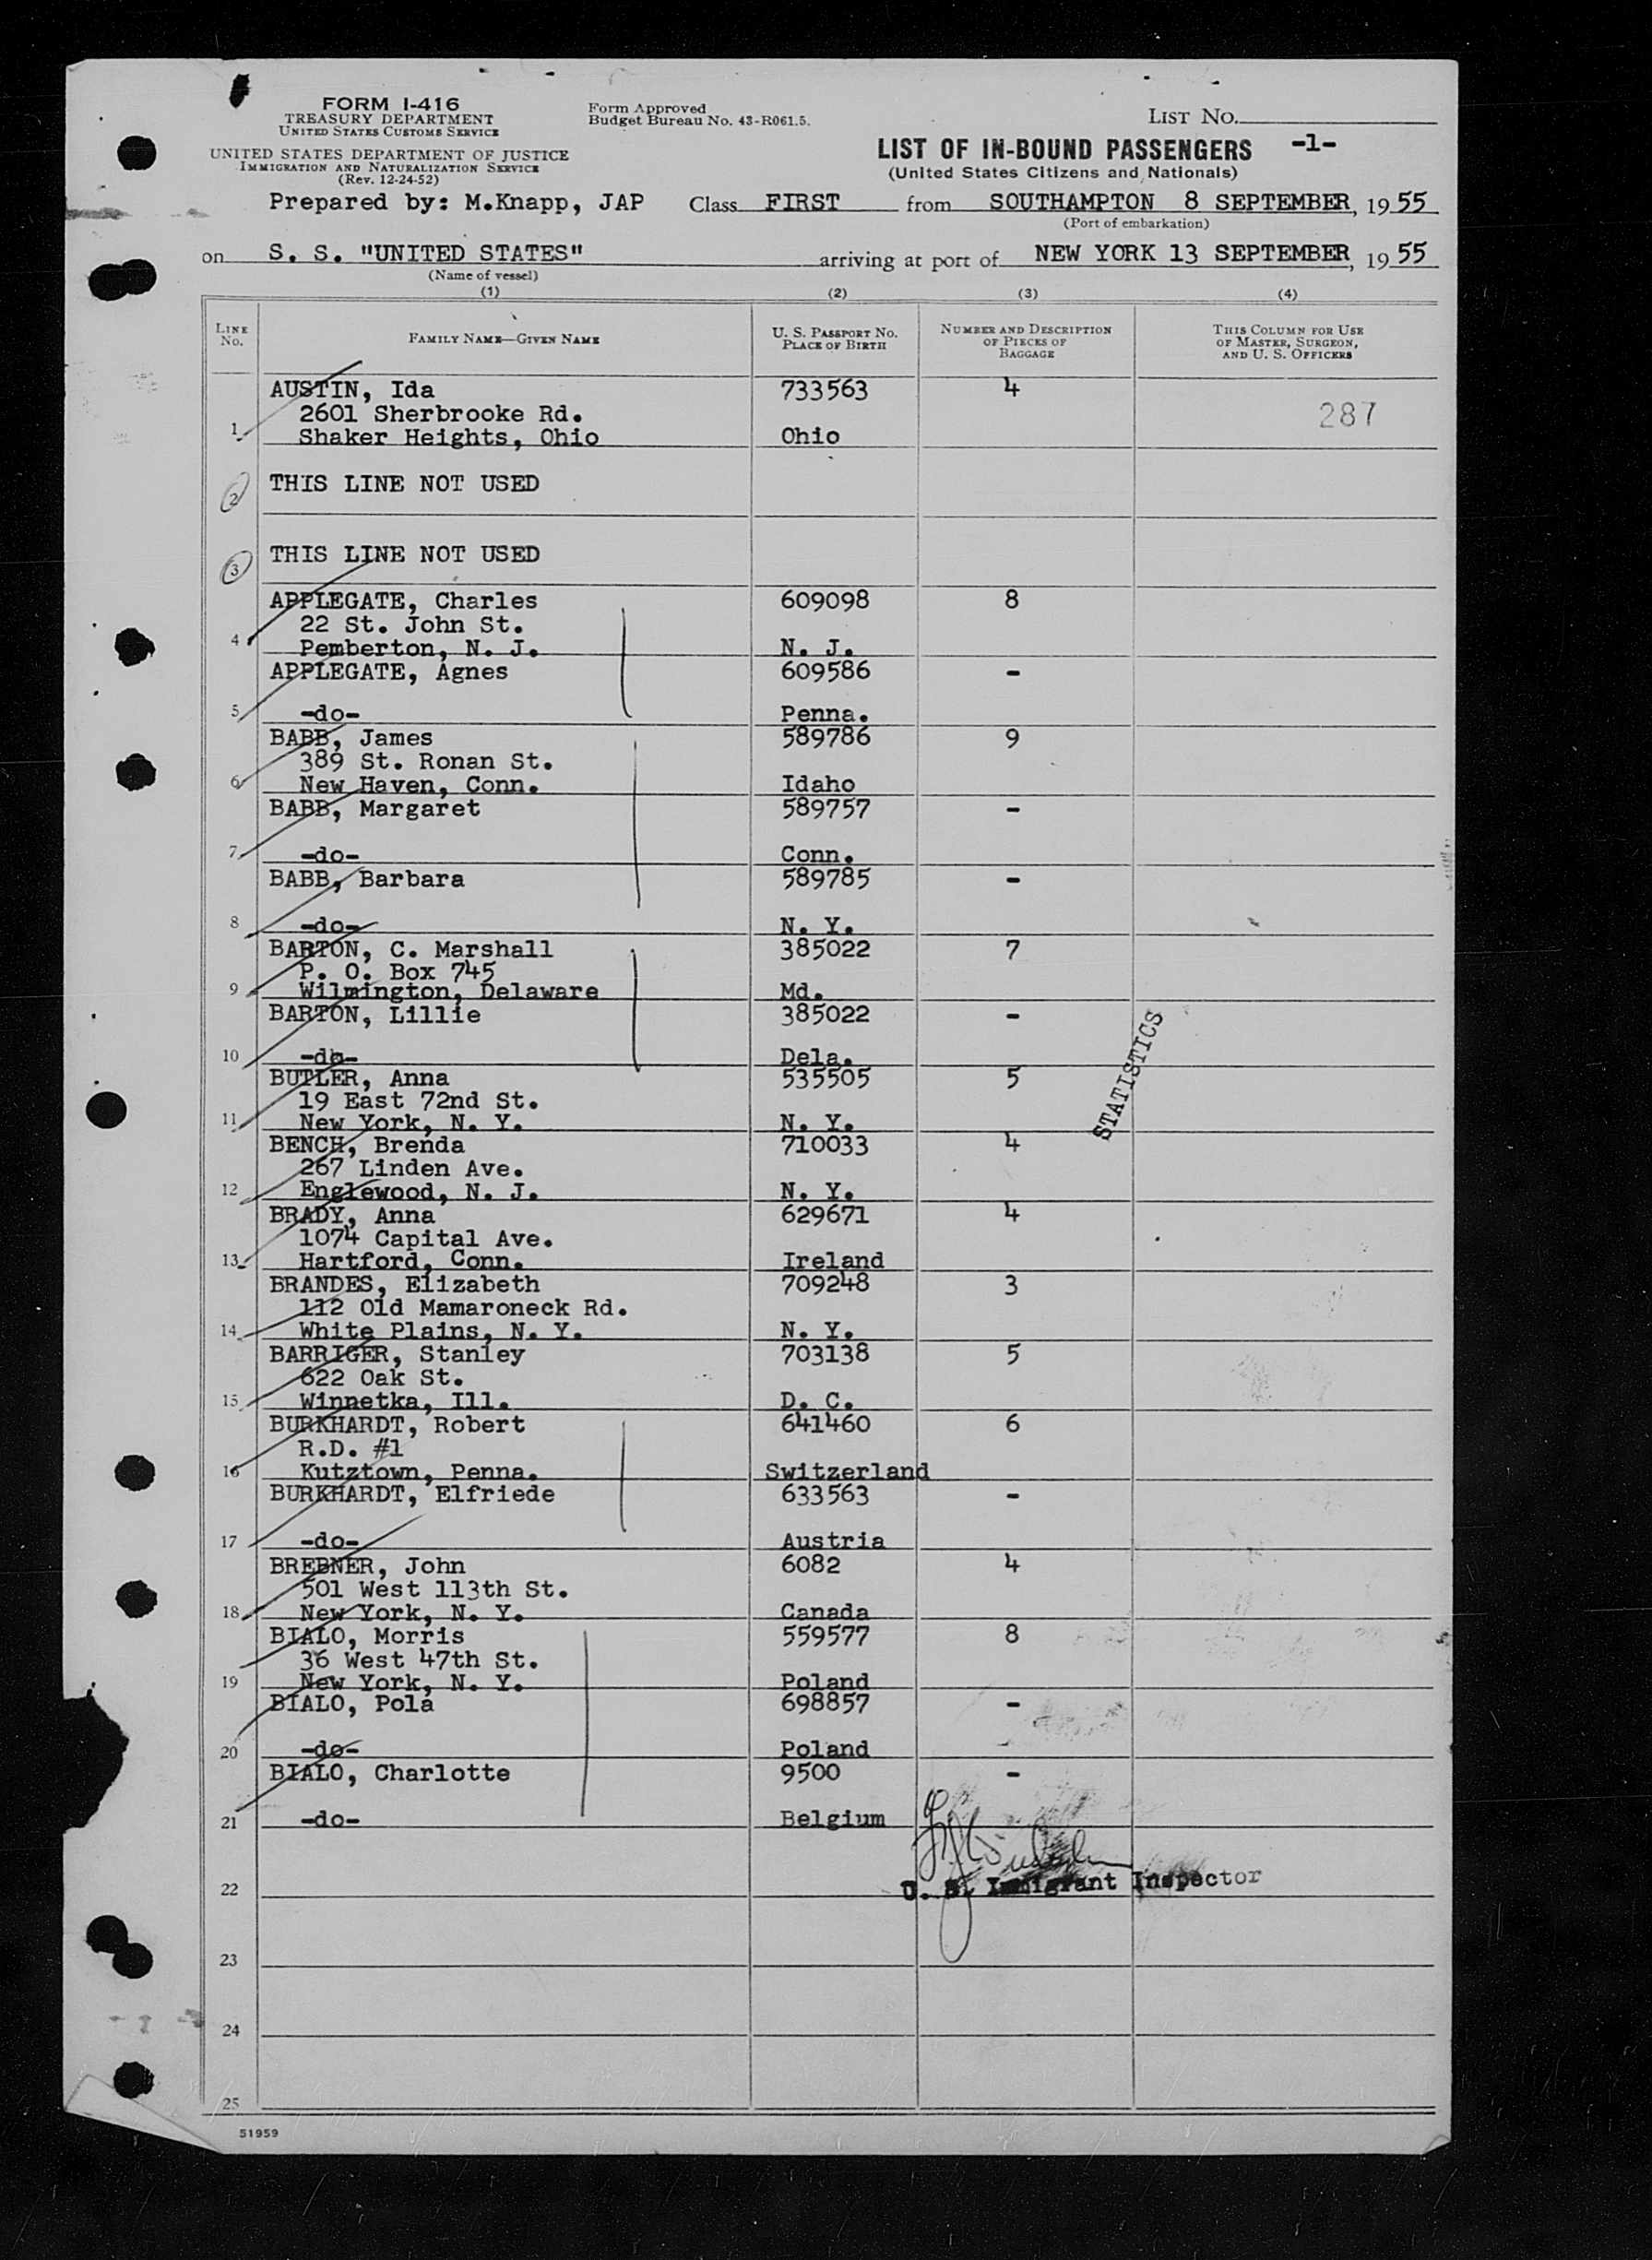 FORM I-416
TREASURY DEPARTMENT
UNITED STATES CUSTOMS SERVICE
UNITED STATES DEPARTMENT OF JUSTICE
IMMIGRATION AND NATURALIZATION SERVICE
(Rev. 12-24-52)
Form Approved
Budget Bureau No. 43-R061.5.
LIST NO.
LIST OF IN-BOUND PASSENGERS -1-
(United States Citizens and Nationals)
Prepared by: M.Knapp, JAP Class FIRST from SOUTHAMPTON 8 SEPTEMBER, 1955
(Port of embarkation)
on S. S. "UNITED STATES" arriving at port of NEW YORK 13 SEPTEMBER, 1955
(Name of vessel)
(1) (2) (3) (4)
LINE NO. FAMILY NAME—GIVEN NAME U. S. PASSPORT NO. PLACE OF BIRTH NUMBER AND DESCRIPTION OF PIECES OF BAGGAGE THIS COLUMN FOR USE OF MASTER, SURGEON, AND U. S. OFFICERS
AUSTIN, Ida 733563 4
2601 Sherbrooke Rd. 287
1 Shaker Heights, Ohio Ohio
2 THIS LINE NOT USED
3 THIS LINE NOT USED
APPLEGATE, Charles 609098 8
22 St. John St.
4 Pemberton, N. J. N. J.
APPLEGATE, Agnes 609586 -
5 -do- Penna.
BABB, James 589786 9
389 St. Ronan St.
6 New Haven, Conn. Idaho
BABB, Margaret 589757 -
7 -do- Conn.
BABB, Barbara 589785 -
8 -do- N. Y.
BARTON, C. Marshall 385022 7
P. O. Box 745
9 Wilmington, Delaware Md.
BARTON, Lillie 385022 -
10 -do- Dela.
BUTLER, Anna 535505 5
19 East 72nd St.
11 New York, N. Y. N. Y.
STATISTICS
BENCH, Brenda 710033 4
267 Linden Ave.
12 Englewood, N. J. N. Y.
BRADY, Anna 629671 4
1074 Capital Ave.
13 Hartford, Conn. Ireland
BRANDES, Elizabeth 709248 3
112 Old Mamaroneck Rd.
14 White Plains, N. Y. N. Y.
BARRIGER, Stanley 703138 5
622 Oak St.
15 Winnetka, Ill. D. C.
BURKHARDT, Robert 641460 6
R.D. #1
16 Kutztown, Penna. Switzerland
BURKHARDT, Elfriede 633563 -
17 -do- Austria
BREBNER, John 6082 4
501 West 113th St.
18 New York, N. Y. Canada
BIALO, Morris 559577 8
36 West 47th St.
19 New York, N. Y. Poland
BIALO, Pola 698857 -
20 -do- Poland
BIALO, Charlotte 9500 -
21 -do- Belgium
22 U. S. Immigrant Inspector
23
24
25
51959